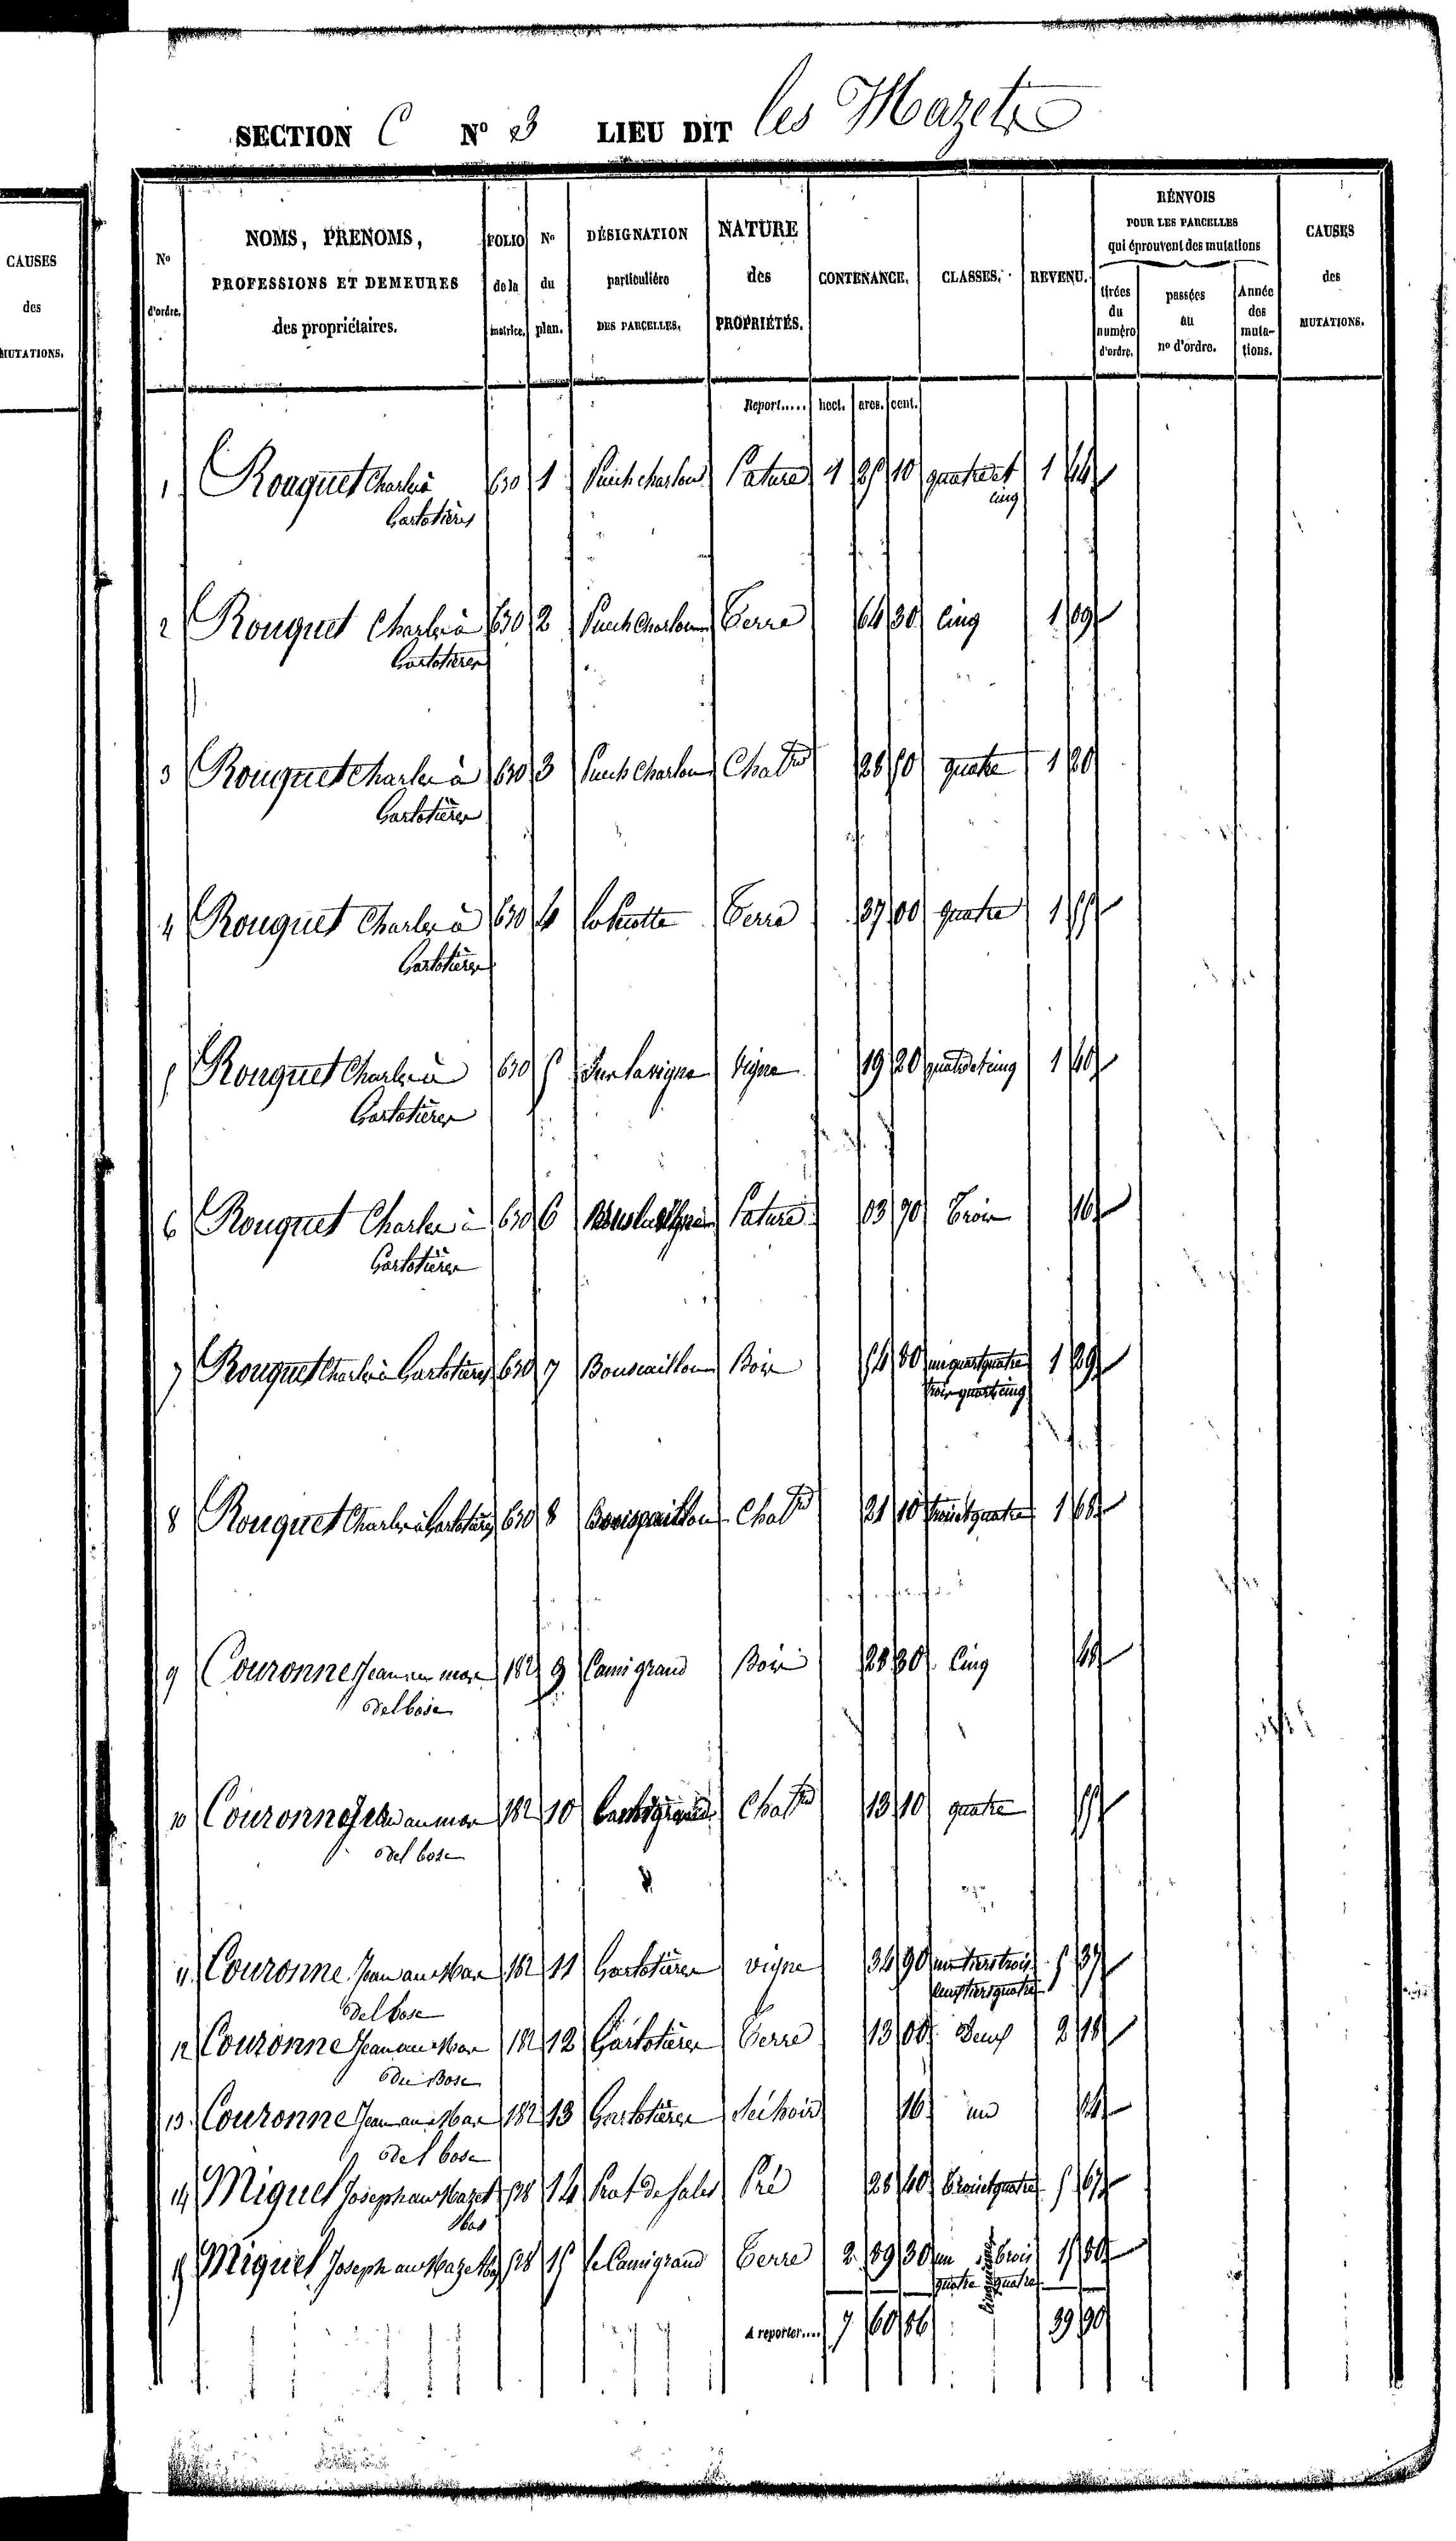 SECTION C No 3 LIEU DIT les Mazets
CAUSES
des
MUTATIONS.
No
d'ordre.
NOMS, PRENOMS,
PROFESSIONS ET DEMEURES
des propriétaires.
FOLIO
de la
matrice.
No
du
plan.
DÉSIGNATION
particulière
DES PARCELLES.
NATURE
des
PROPRIÉTÉS.
CONTENANCE.
CLASSES.
REVENU.
RENVOIS
POUR LES PARCELLES
qui éprouvent des mutations
tirées
du
numéro
d'ordre.
passées
au
no d'ordre.
Année
des
muta-
tions.
CAUSES
des
MUTATIONS.
Report..... hect. ares. cent.
1 Rouquet Charles à 630 1 Puech charlou Pature 1 25 10 quatre et 1 44
Gartotières cinq
2 Rouquet Charles à 630 2 Puech Charlou Terre 64 30 Cinq 1 09
Gartotières
3 Rouquet Charles à 630 3 Puech Charlou Chatrie 28 50 quatre 1 20
Gartotières
4 Rouquet Charles à 630 4 Terre 37 00 quatre 1 55
Gartotières
5 Rouquet Charles à 630 5 Sur la vigne Vigne 19 20 quatre et cinq 1 40
Gartotières
6 Rouquet Charles à 630 6 Pature 03 90 Trois 16
Gartotières
7 Rouquet Charles à Gartotières 630 7 Bouscaillou Bois 54 80 un quart quatre 1 29
trois quarts cinq
8 Rouquet Charles à Gartotières 630 8 Chatrie 21 10 trois et quatre 1 68
9 Couronne Jean au mas 182 9 Cami grand Bois 28 30 Cinq 48
del bosc
10 Couronne Jean au mas 182 10 Chatrie 13 10 quatre 55
del bosc
11 Couronne Jean au Mas 182 11 Gartotières vigne 34 90 un tiers trois 5 37
del bosc deux tiers quatre
12 Couronne Jean au Mas 182 12 Gartotières Terre 13 00 Deux 2 18
du Bosc
13 Couronne Jean au Mas 182 13 Gartotières Séchoir 16 un 14
del bosc
14 Miquel Joseph au Mazet 528 14 Prat de Sales Pré 28 40 trois et quatre 5 67
bas
15 Miquel Joseph au Mazet bas 528 15 le Cami grand Terre 2 89 30 un trois 15 80
quatre quatre
cinquièmes
A reporter.... 7 60 86 39 90